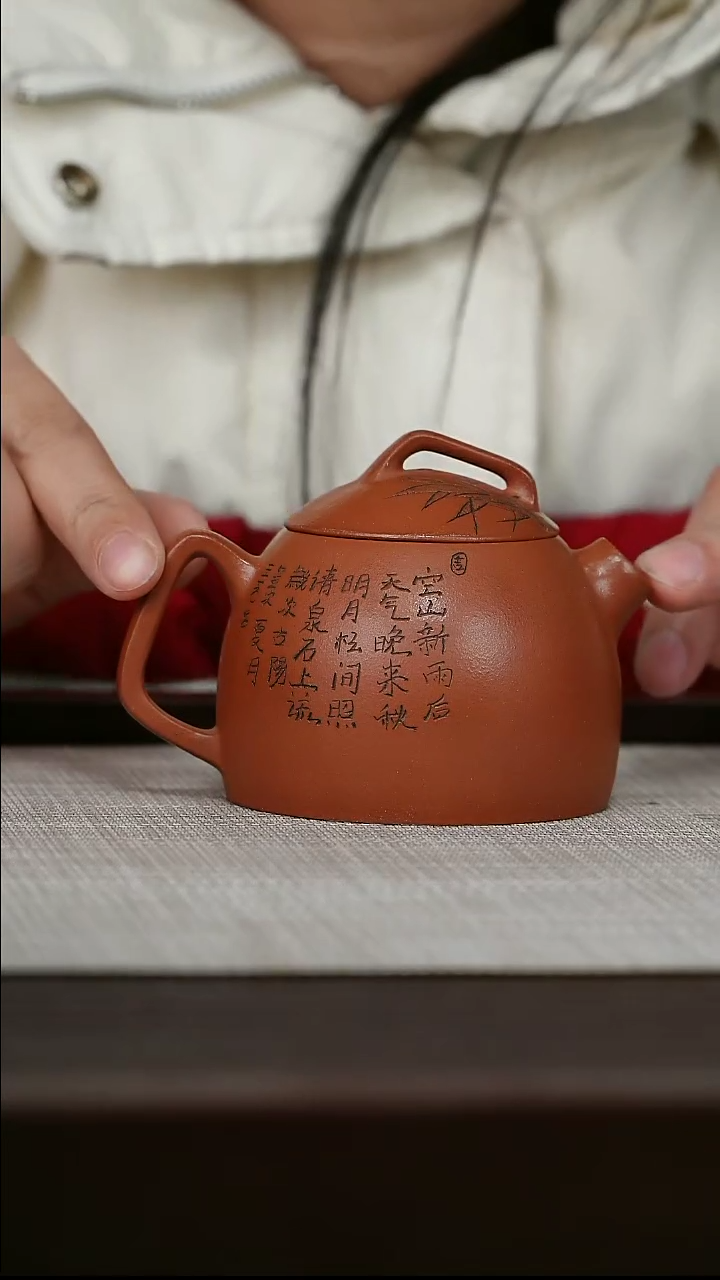 空山新雨后
天气晚来秋
明月松间照
清泉石上流
歲次古陽
夏月